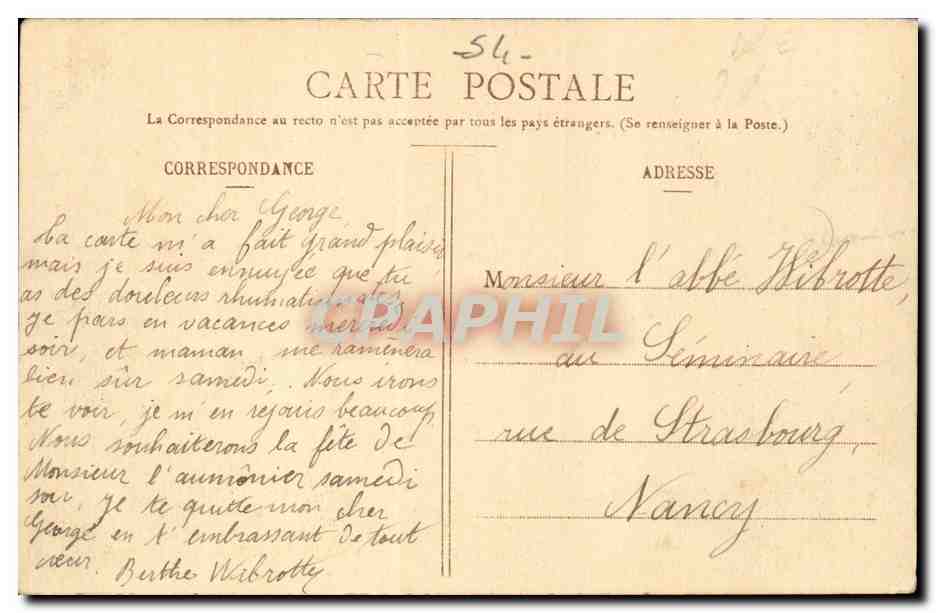 54-
CARTE POSTALE
La Correspondance au recto n'est pas acceptée par tous les pays étrangers. (Se renseigner à la Poste.)
CORRESPONDANCE
Mon cher George
Ta carte m'a fait grand plaisir
mais je suis ennuyée que tu
as des douleurs rhumatismales
Je pars en vacances mercredi
soir, et maman me ramènera
bien sûr samedi. Nous irons
te voir, je m'en réjouis beaucoup
Nous souhaiterons la fête de
Monsieur l'aumônier samedi
soir, Je te quitte mon cher
George en t'embrassant de tout
cœur. Berthe Wibrotte
ADRESSE
Monsieur l'abbé Wibrotte,
au Séminaire
rue de Strasbourg,
Nancy
CPAPHIL